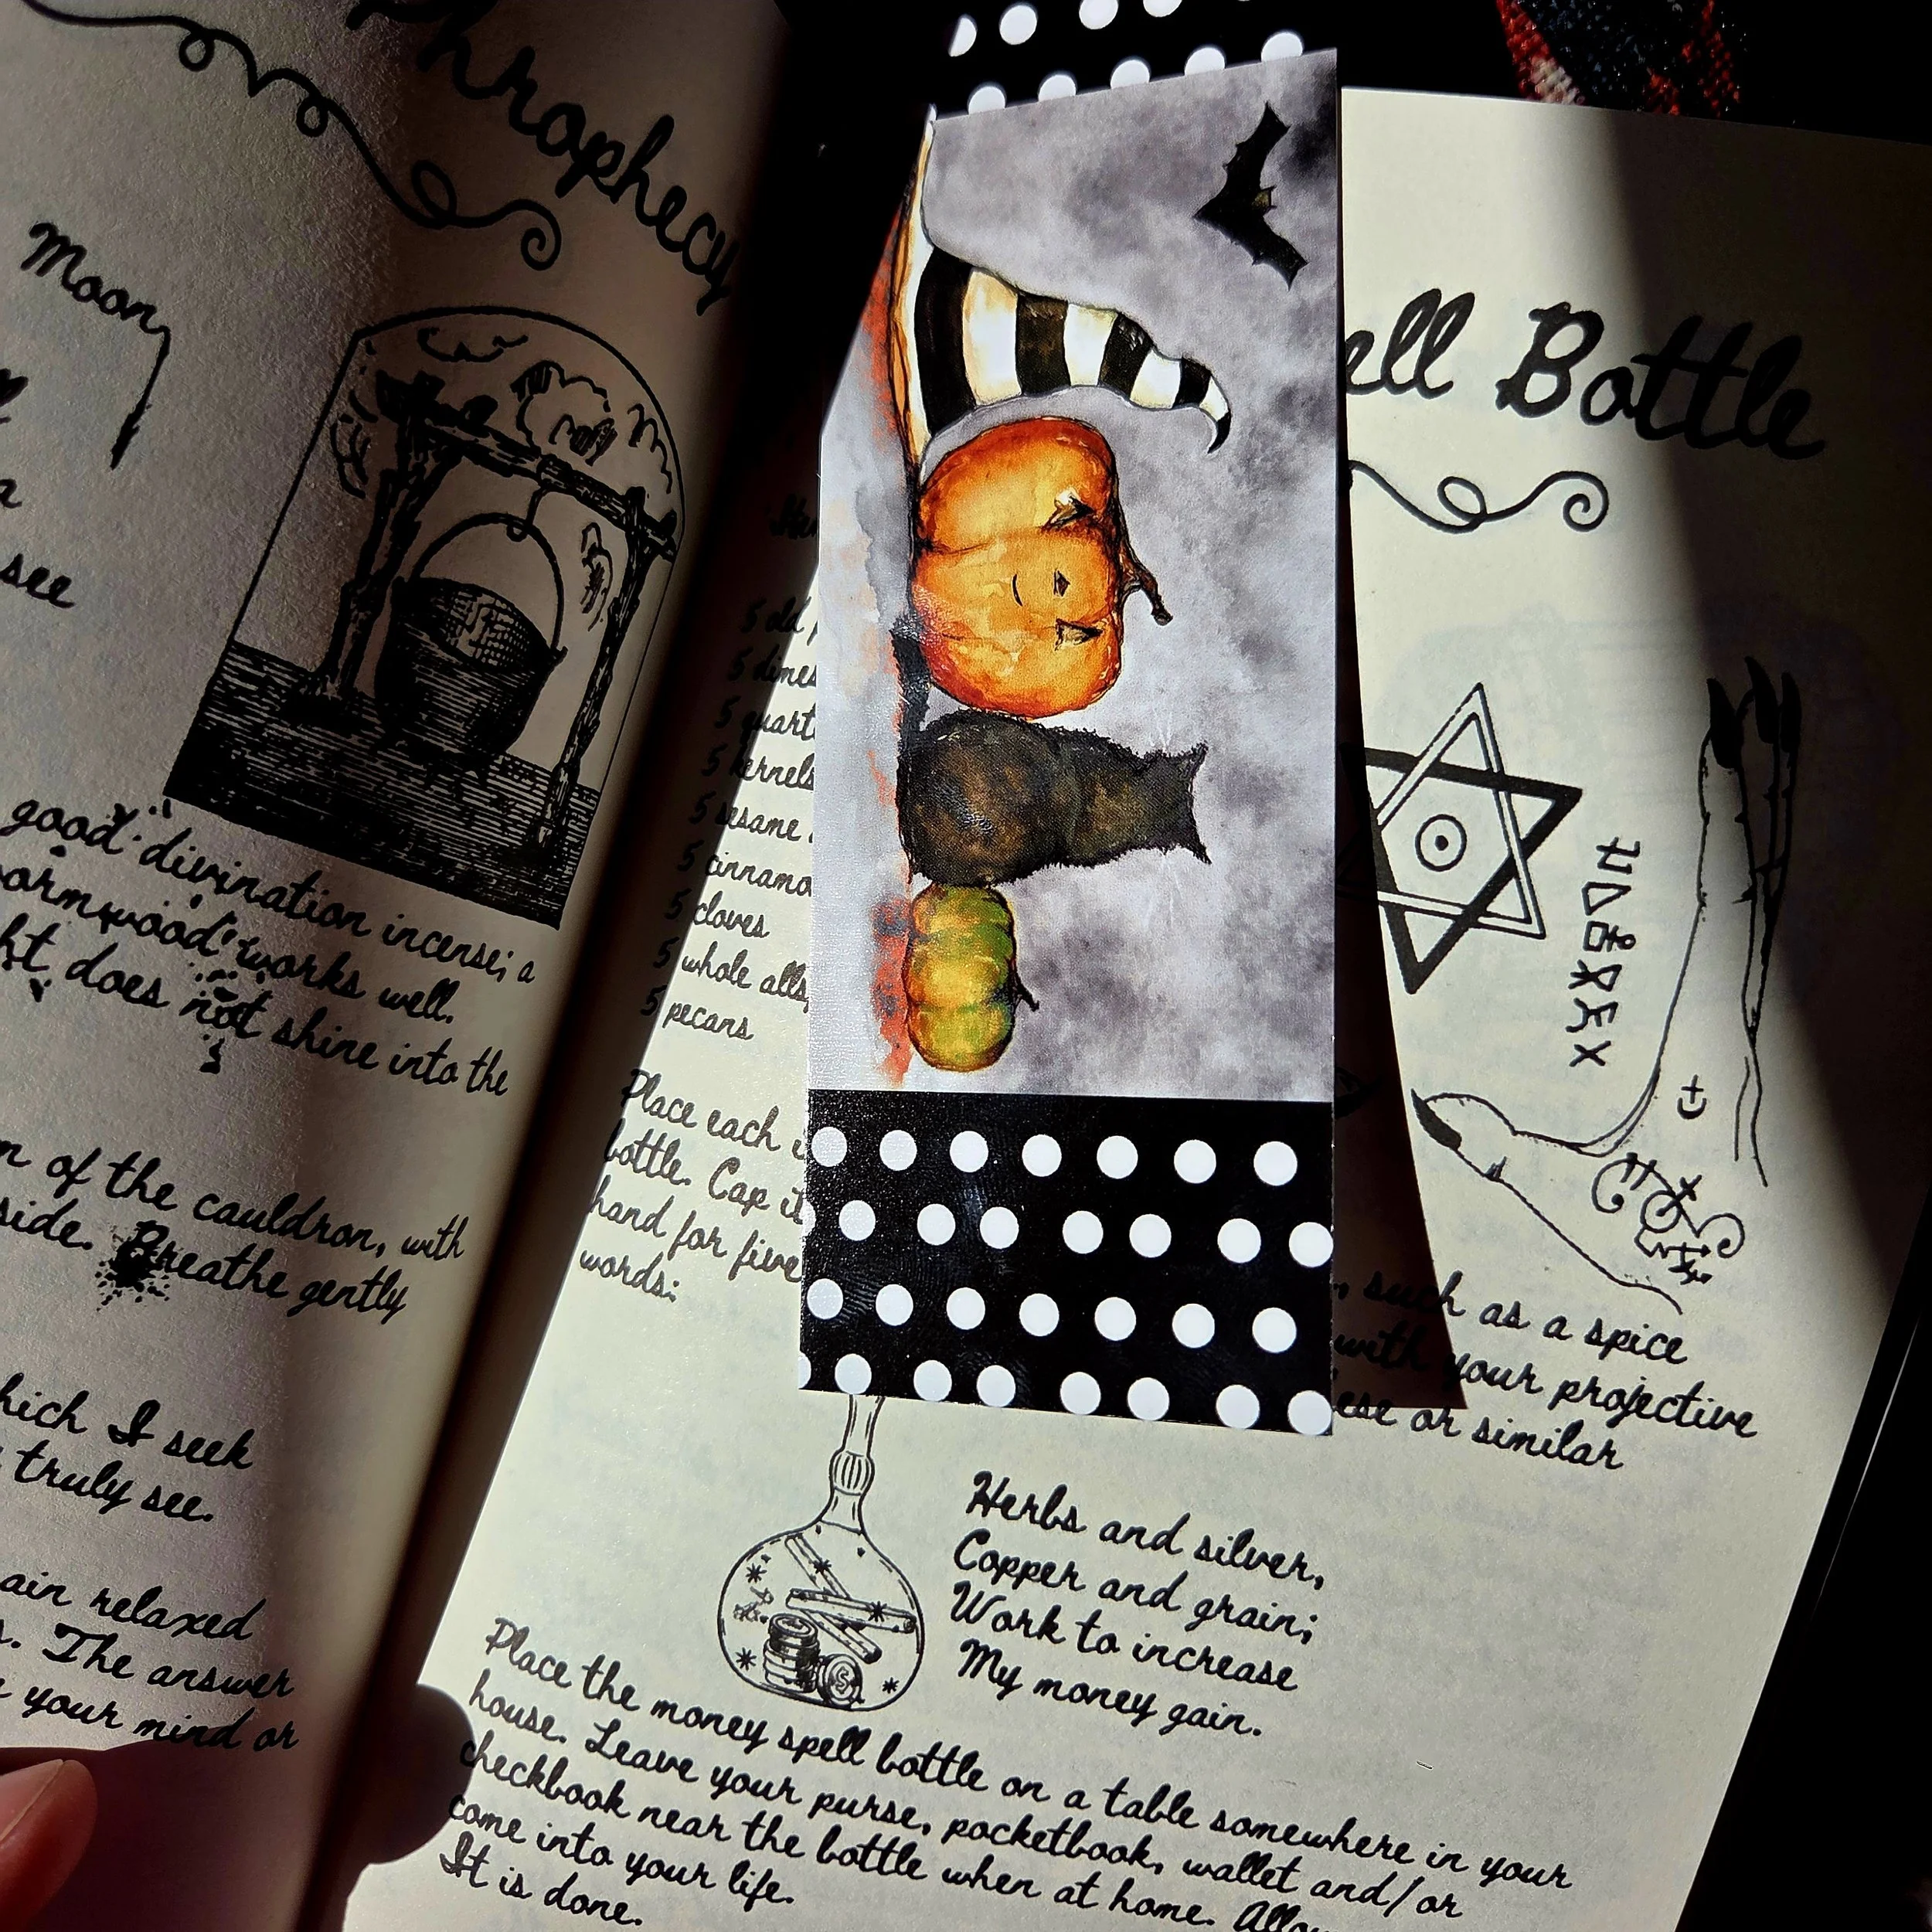 Phrophecy
Moon,
a
see
good divination incense; a
wormwood works well.
does not shine into the
of the cauldron, with
side. Breathe gently
which I seek
truly see.
relaxed
The answer
your mind or
Bottle
5 old
5 dimes
5
5 kernels
5 sesame
5
5 cloves
5 whole
5 pecans
Place each
bottle. Cap it
hand for five
words:
such as a spice
with your projective
or similar
Herbs and silver,
Copper and grain;
Work to increase
My money gain.
Place the money spell bottle on a table somewhere in your
house. Leave your purse, pocketbook, wallet and/or
checkbook near the bottle when at home. Allow
come into your life.
It is done.